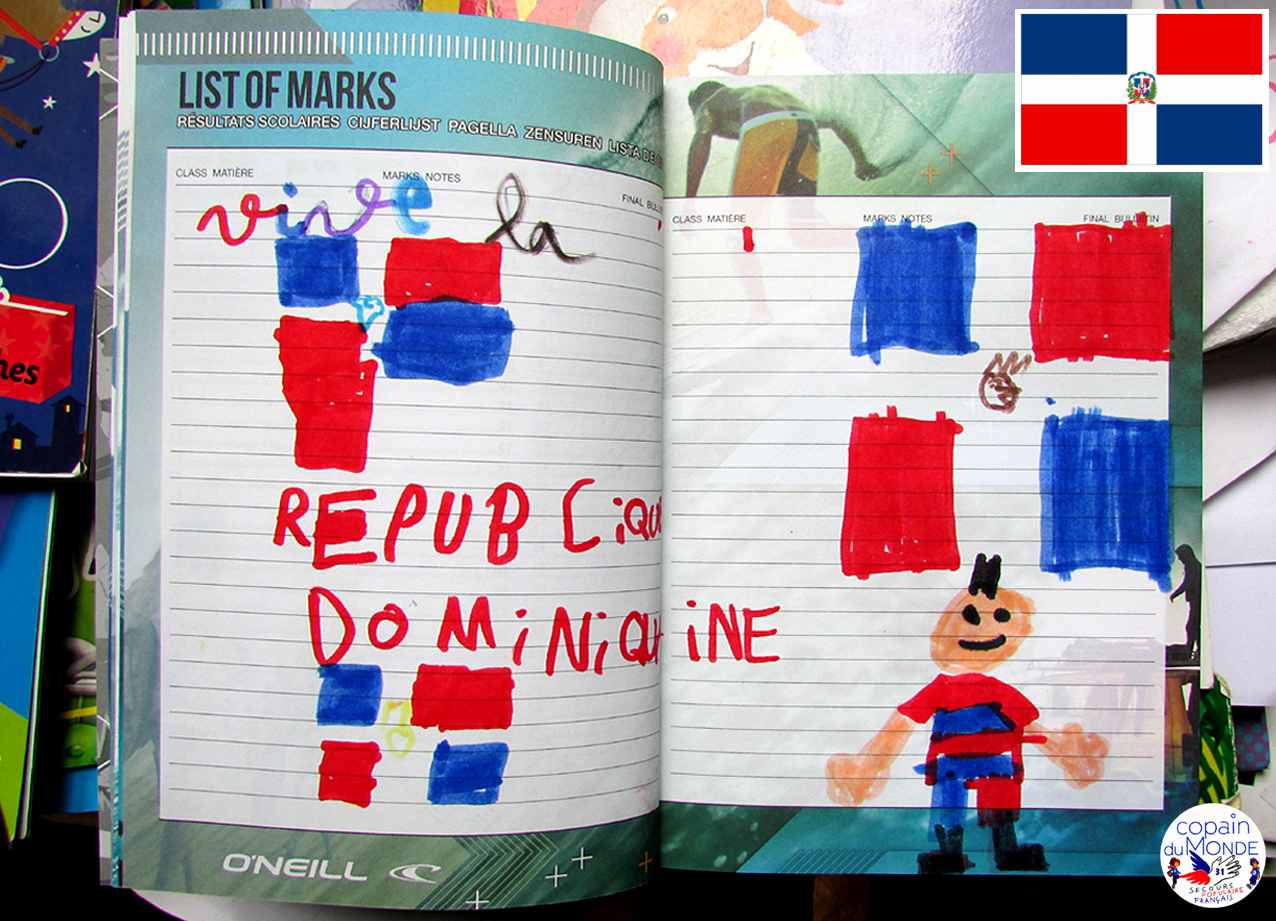 LIST OF MARKS
RESULTATS SCOLAIRES CIJFERLIJST PAGELLA ZENSUREN LISTA DE
CLASS MATIÈRE MARKS NOTES FINAL
vive la
REPUBLIQUE
DOMINIQUAINE
O'NEILL
CLASS MATIÈRE MARKS NOTES FINAL BULLETIN
hes
copain
du MONDE
31
SECOURS
POPULAIRE
FRANÇAIS